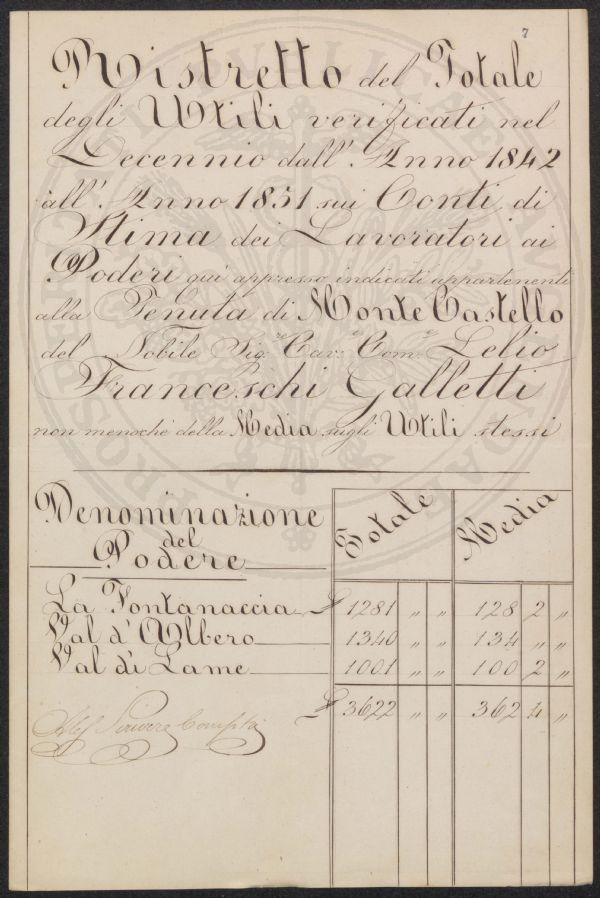 7
Ristretto del Totale
degli Utili verificati nel
Decennio dall'. Anno 1842
all'. Anno 1851 sui Conti di
Stima dei Lavoratori ai
Poderi qui appresso indicati appartenenti
alla Tenuta di Monte Castello
del Nobile Sig.re Cav.e Com.e Lelio
Franceschi Galletti
non menochè della Media sugli Utili stessi
Denominazione del Podere Totale Media
La Fontanaccia £ 1281 " " 128 2 "
Val d'Albero 1340 " " 134 " "
Val di Lame 1001 " " 100 2 "
£ 3622 " " 362 4 "